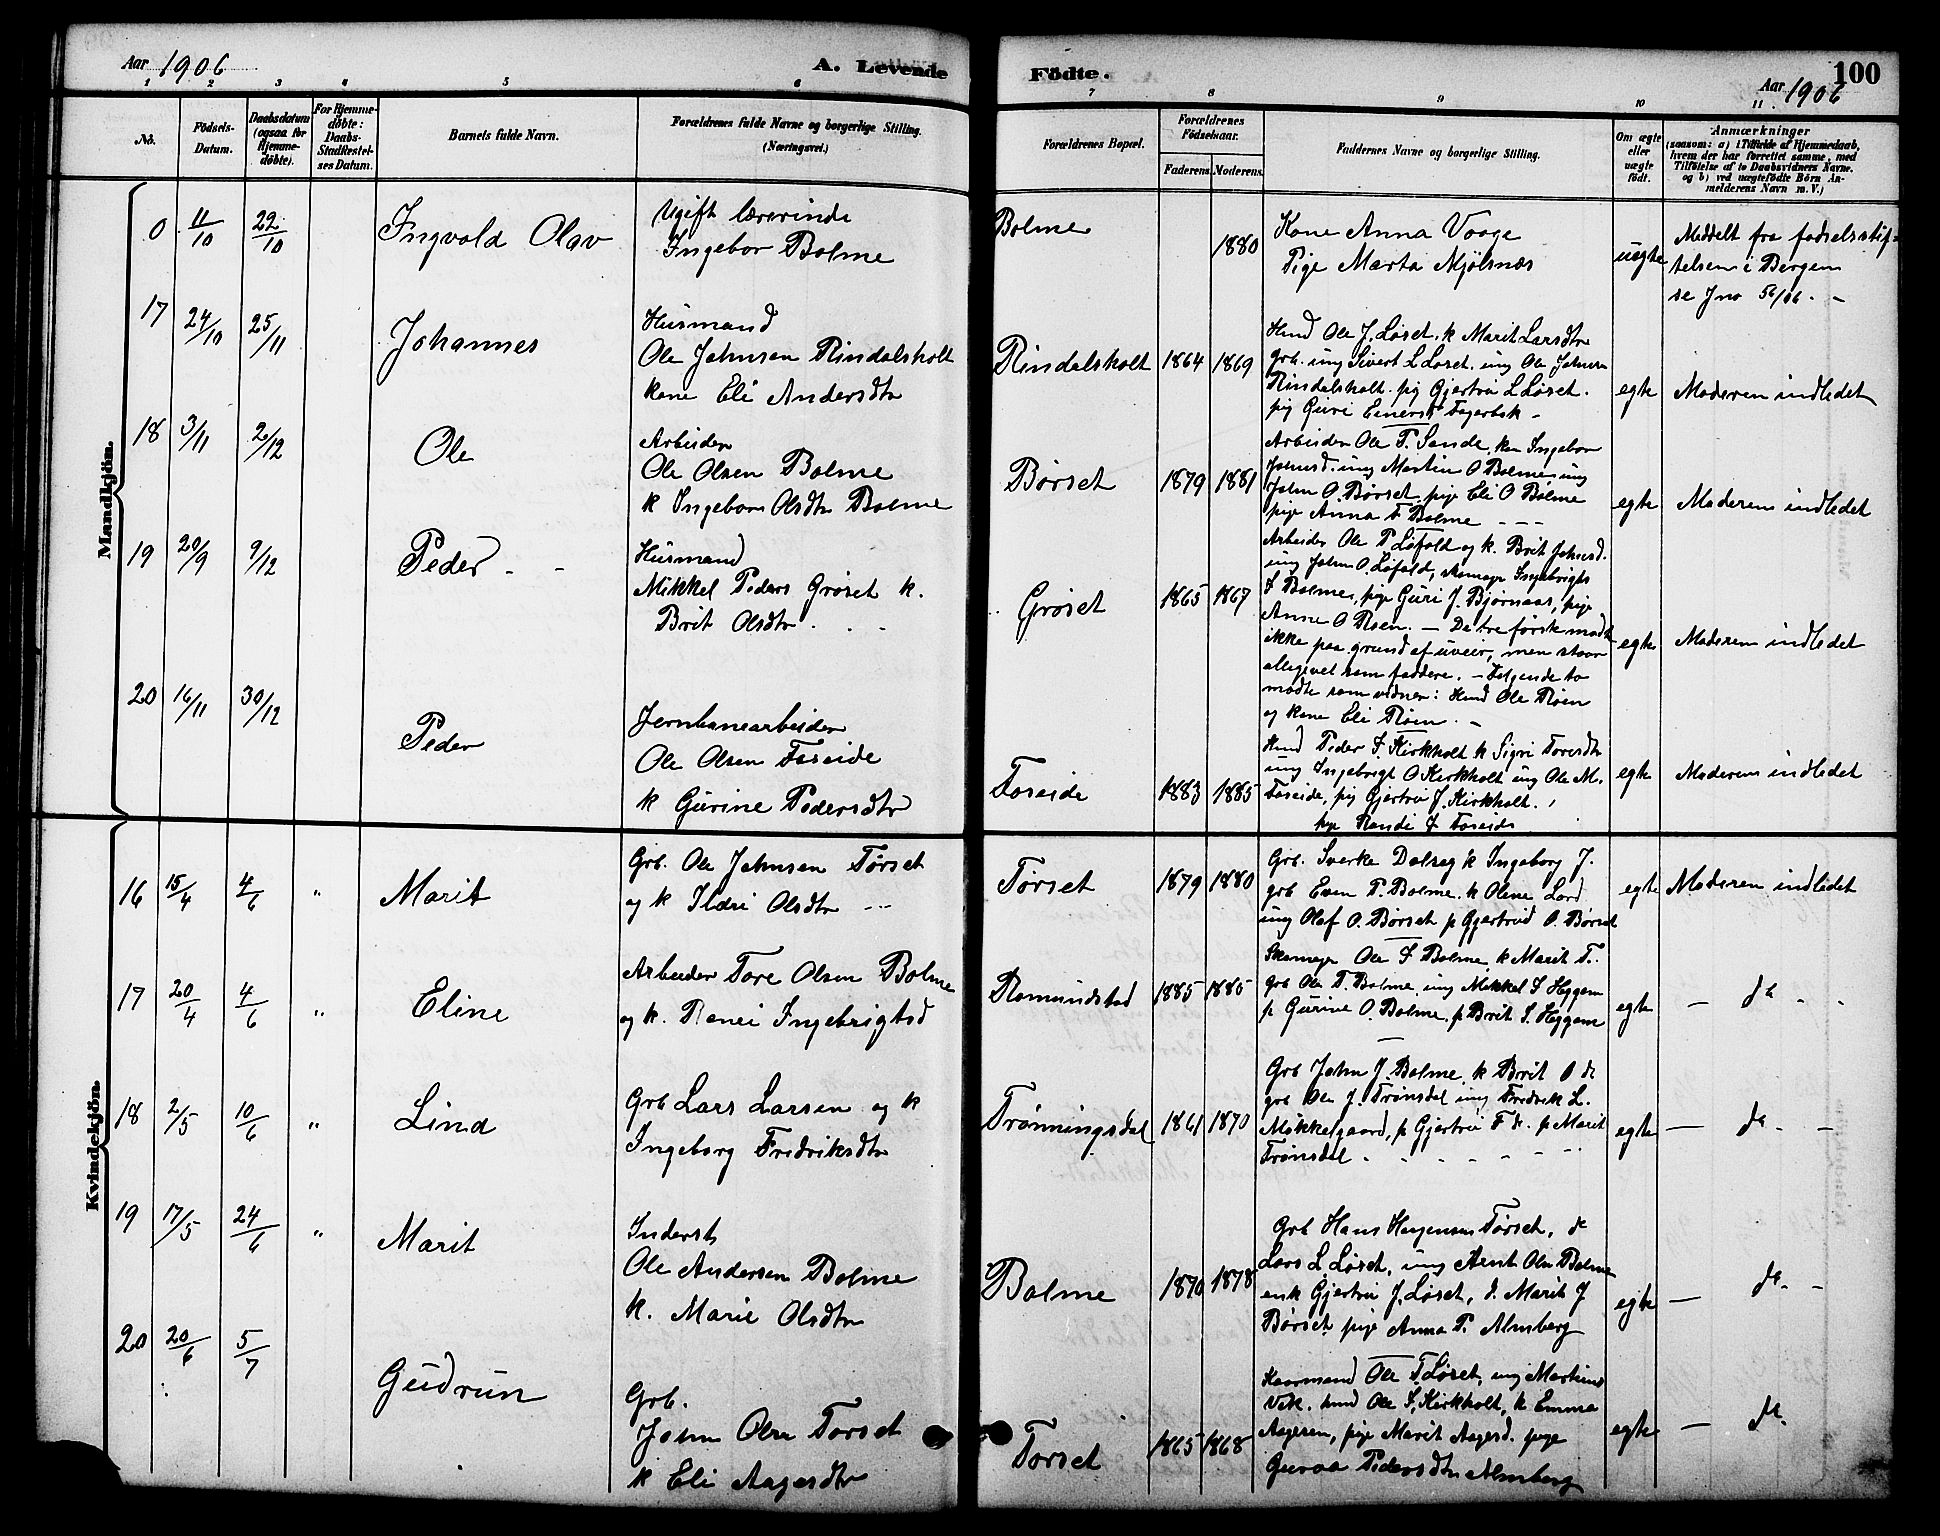 Aar 1906
A. Levende
Fødte.
Aar 1906
100
1 2 3 4 5 6 7 8 9 10 11
No.
Fødsels-
Datum.
Daabsdatum
(ogsaa for
Hjemme-
døbte).
For Hjemme-
døbte:
Daabs-
Stadfæstel-
ses Datum.
Barnets fulde Navn.
Forældrenes fulde Navne og borgerlige Stilling.
(Næringsvei.)
Forældrenes Bopæl.
Forældrenes
Fødselsaar.
Faderens Moderens
Faddernes Navne og borgerlige Stilling.
Om ægte
eller
uægte
født.
Anmærkninger
(saasom: a) i Tilfælde af Hjemmedaab,
hvem der har forrettet samme, med
Tilføielse af to Daabsvidners Navne,
og b) ved uægtefødte Børn An-
melderens Navn m. V.)
Mandkjøn.
0 11/10 22/10 Ingvald Olav
Ugift lærerinde
Ingebor Bolme
Bolme 1880
Kone Anna Vaage
Pige Marta Mjølsnes
uegte
Meddelt fra fødselsstif-
telsen i Bergen
se Jno 56/06. -
17 24/10 25/11 Johannes
Husmand
Ole Johnsen Rindalsholt
kone Eli Andersdtr
Rindalsholt 1864 1869
Husd Ole J. Løset. k Marit Larsdtr
grb. ung Sivert L Løset. ung Ole Johnsen
Rindalsholt. pig Gjertru L Løset.
pig Guri Einersd Fagerbk -
egte Moderen indledet
18 3/11 2/12 Ole
Arbeider
Ole Olsen Bolme
k Ingebor Olsdtr Bolme
Børset 1879 1881
Arbeider Ole T. Sande, kon Ingebor
Johnsd. ung Martin O Bolme ung
John O. Børset, pige Eli O Bolme
pige Anna F Bolme - - -
egte Moderen indledet
19 20/9 9/12 Peder - -
Husmand
Mikkel Peders Grøset k.
Brit Olsdtr . . -
Grøset 1865 1867
Arbeider Ole P Løfald og k. Brit Johnsd.
ung John O. Løfald, skomager Ingebrigt
I Bolme, pige Guri J. Bjørnaas, pige
Anne O Roen. - De tre første mødte
ikke paa grund af uveir, men staar
allegivel som faddere. - Følgende to
mødte som vidner: Husd Ole Røen
og kone Eli Røen. -
egte Moderen indledet
20 16/11 30/12 Peder
Jernbanearbeider
Ole Olsen Foseide
k Gurine Pedersdtr
Foseide 1883 1885
Husd Peder I. Kirkholt k Sigri Toresdtr
ung Ingebrigt O Kirkholt ung Ole M.
Foseide, pig Gjertru J. Kirkholt.
pige Randi I Foseide
egte Moderen indledet
Kvindekjøn.
16 15/4 4/6 " Marit
Grb. Ole Johnsen Tørset
og k Ildri Olsdtr - -
Tørset 1879 1880
Grb. Sverke Dalseg k Ingeborg J.
grb Even P. Bolme. k Olene Lord
ung Olaf O. Børset p Gjertrud O. Børset
egte Moderen indledet
17 20/4 4/6 " Eline
Arbeider Tore Olsen Bolme
og k. Ranei Ingebrigtsd
Romundstad 1885 1885
Skomager Ole I Bolme, k Marit T.
grb Ole T. Bolme, ung Mikkel S Heggem
p Gurine O. Bolme, p Brit S. Heggem
egte - do - -
18 2/5 10/6 " Lina
Grb Lars Larsen og k
Ingeborg Fredriksdtr
Trønningsdal 1861 1870
Grb John J. Bolme, k Brit O do
grb Ole J. Trønsdal ung Fredrik L.
Mikkelgaard, p Gjertru F do. p Marit
Trønsdal - - - - - -
egte - do - -
19 17/5 24/6 " Marit
Inderst
Ole Andersen Bolme
k. Marie Olsdtr
Bolme 1870 1878
Grb Hans Tørset, do
Lars L Løset, ung Arnt Olsn Bolme
enk Gjertru J, Løset, d. Marit J
Børset pige Anna P. Almberg
egte - do. -
20 20/6 5/7 Gudrun
Grb.
John Olsn Torset
k Eli Aagesdtr
Torset 1865 1868
Kaarmand Ole T Løset, ung Martinus
Vik. husd Ole S, Kirkholt, k Emma
Aagesen, pige Marit Aagesd. pige
Guroa Pedersdtr Almberg
egte - do.